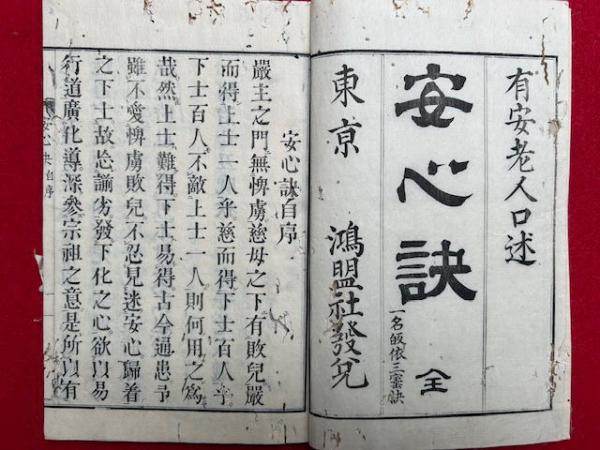 有安老人口述
安心訣
一名皈依三寳訣
全
東京　鴻盟社發兌
安心訣自序
嚴主之門無悍虜慈母之下有敗兒嚴
而得上士一人乎慈而得下士百人乎
下士百人不敵上士一人則何用之爲
哉然上士難得下士易得古今通患予
雖不愛悍虜敗兒不忍見迷安心歸着
之下士故忘謭劣發下化之心欲以易
行道廣化導深參宗祖之意是所以有
安心訣自序